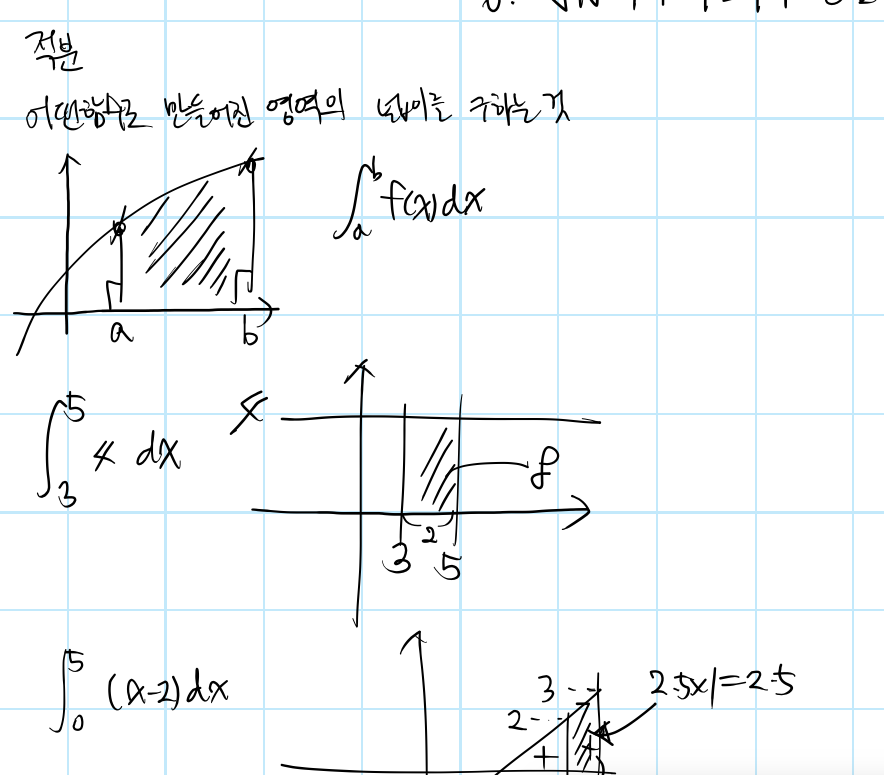 적분
어떤함수로 만들어진 영역의 넓이를 구하는 것
∫ₐᵇ f(x)dx
a b
∫₃⁵ 4 dx
4
8
2
3 5
∫₀⁵ (x-2)dx
3
2
2.5x1=2.5
+ +